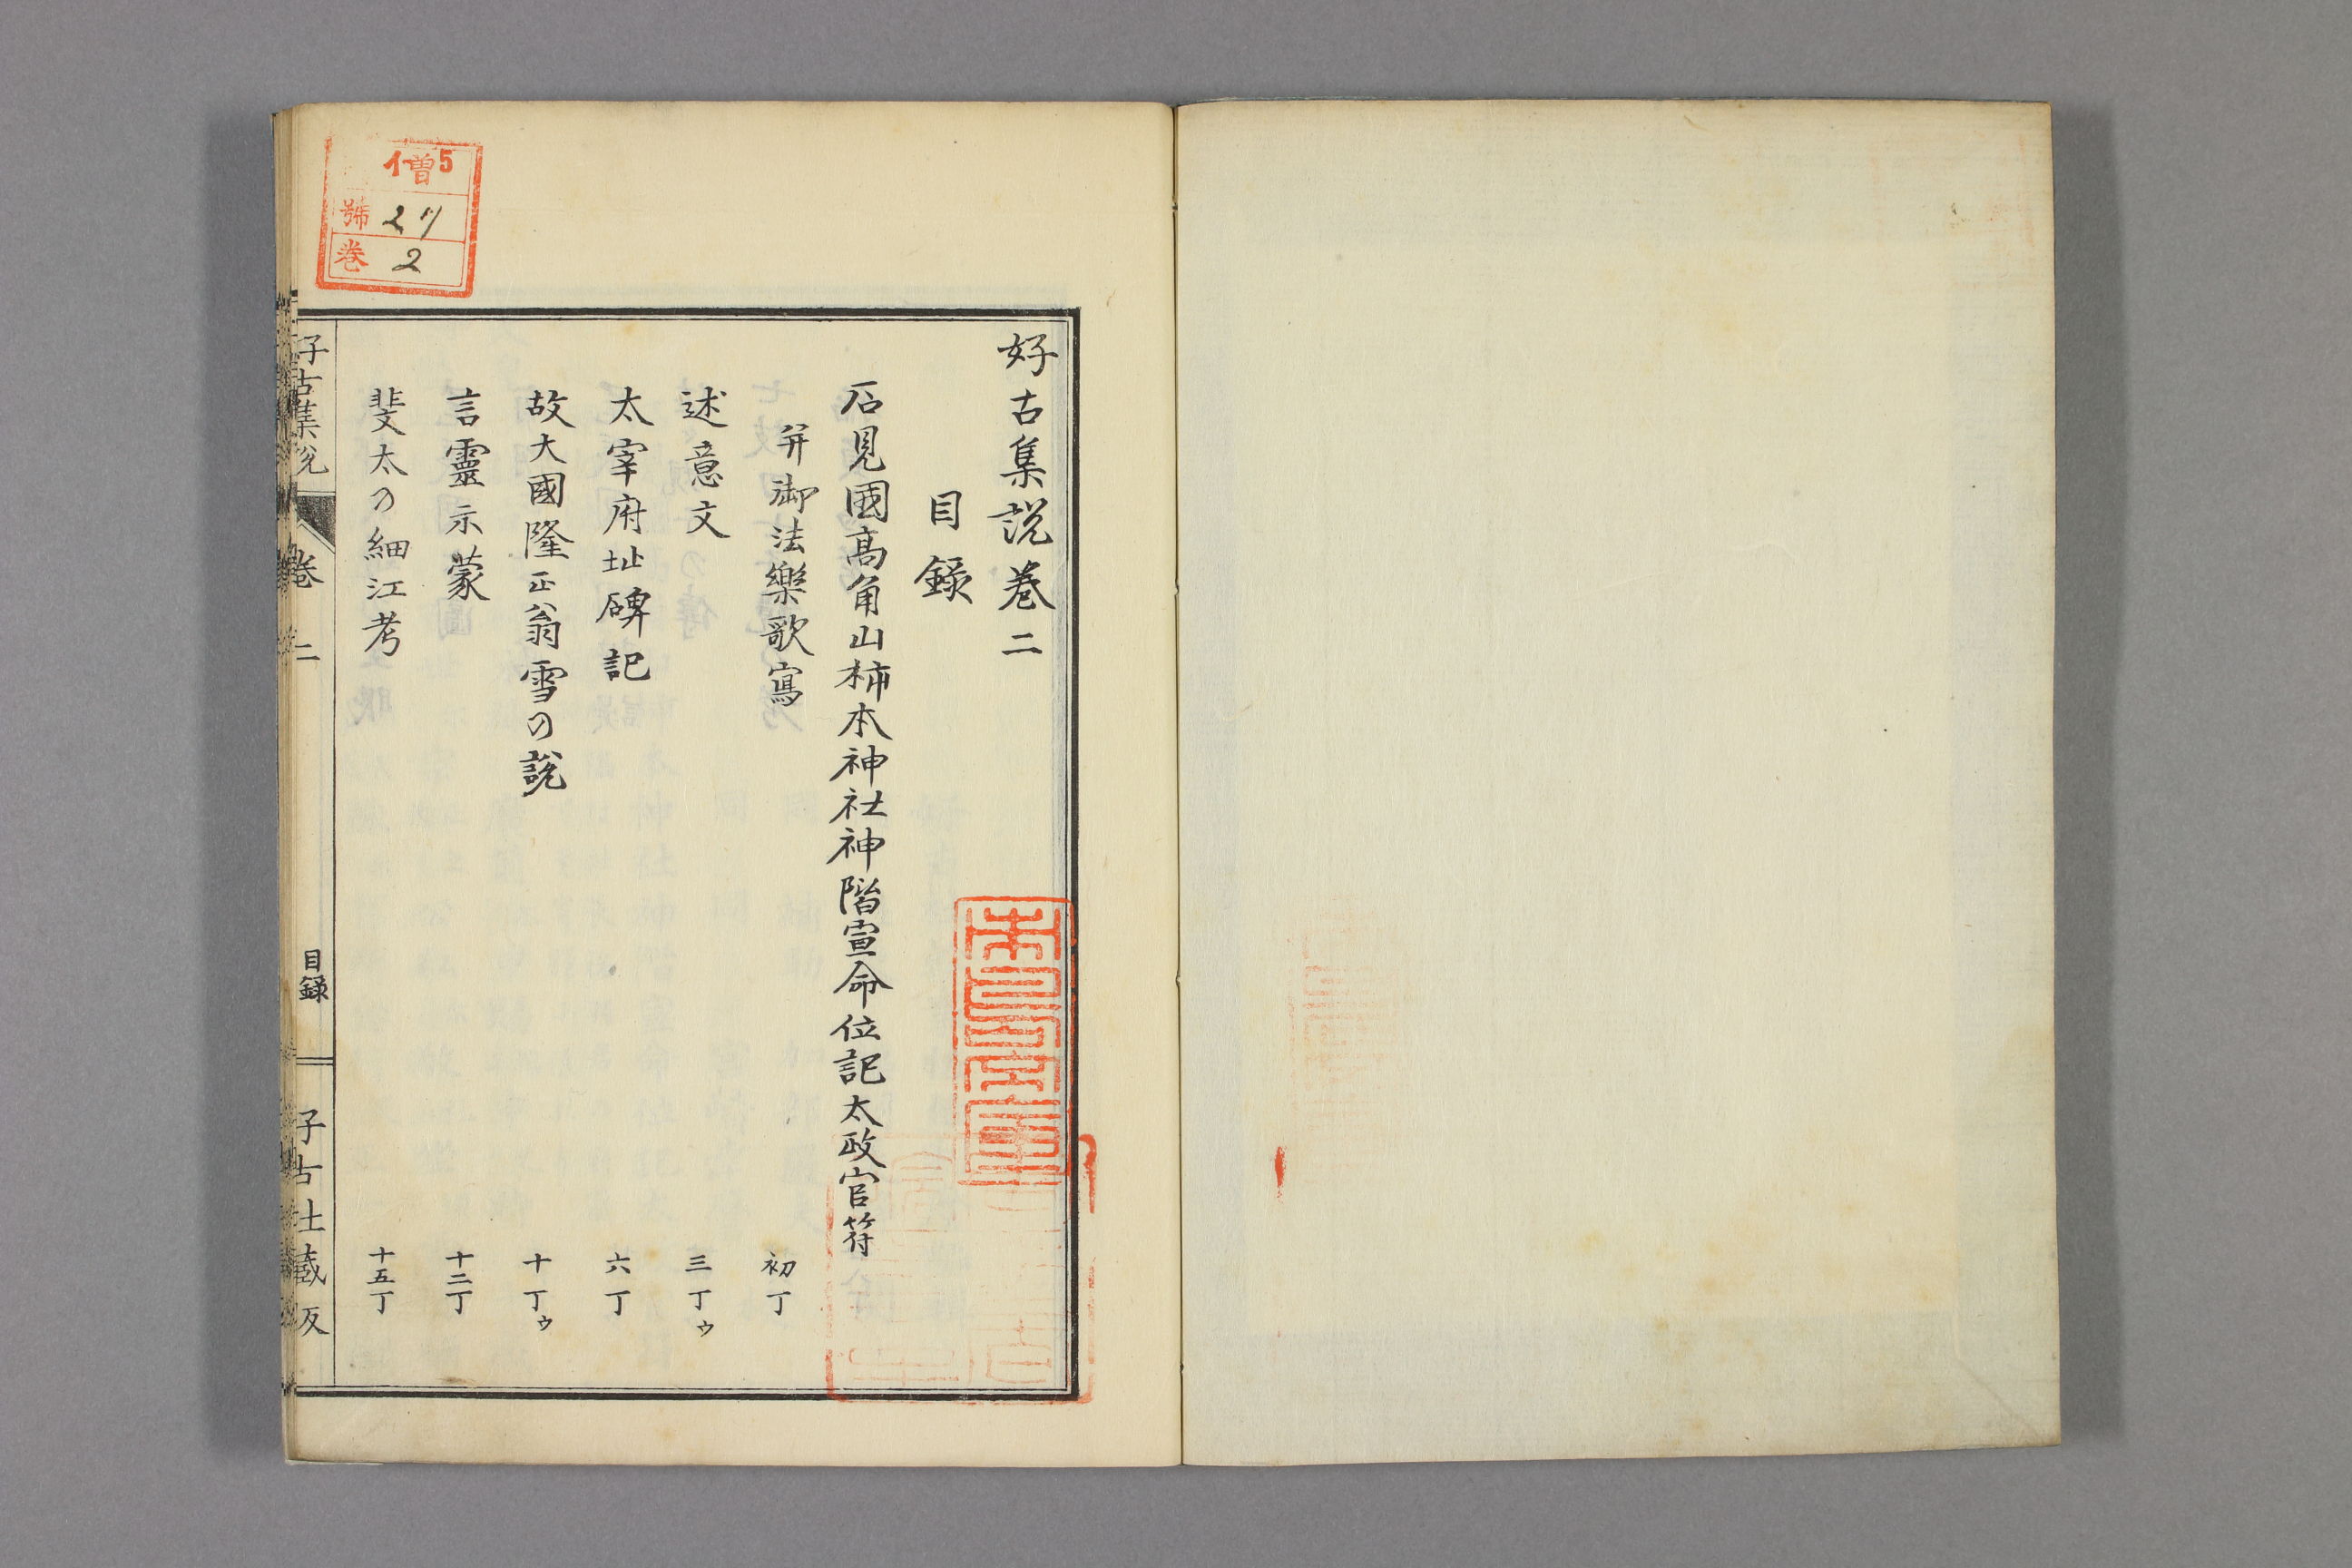 好古集說卷二
目錄
石見國髙角山柿本神社神階宣命位記太政官符
并御法樂歌寫　初丁
述意文　三丁ウ
太宰府址碑記　六丁
故大國隆正翁雪の說　十丁ウ
言靈示蒙　十二丁
斐太の細江考　十五丁
好古集說　卷二　目錄　好古社藏版
増5
號 27
卷 2